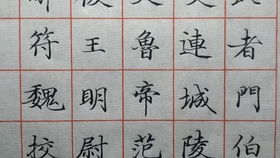 者門伯
連城陵
魯帝范
王明尉
符魏挍